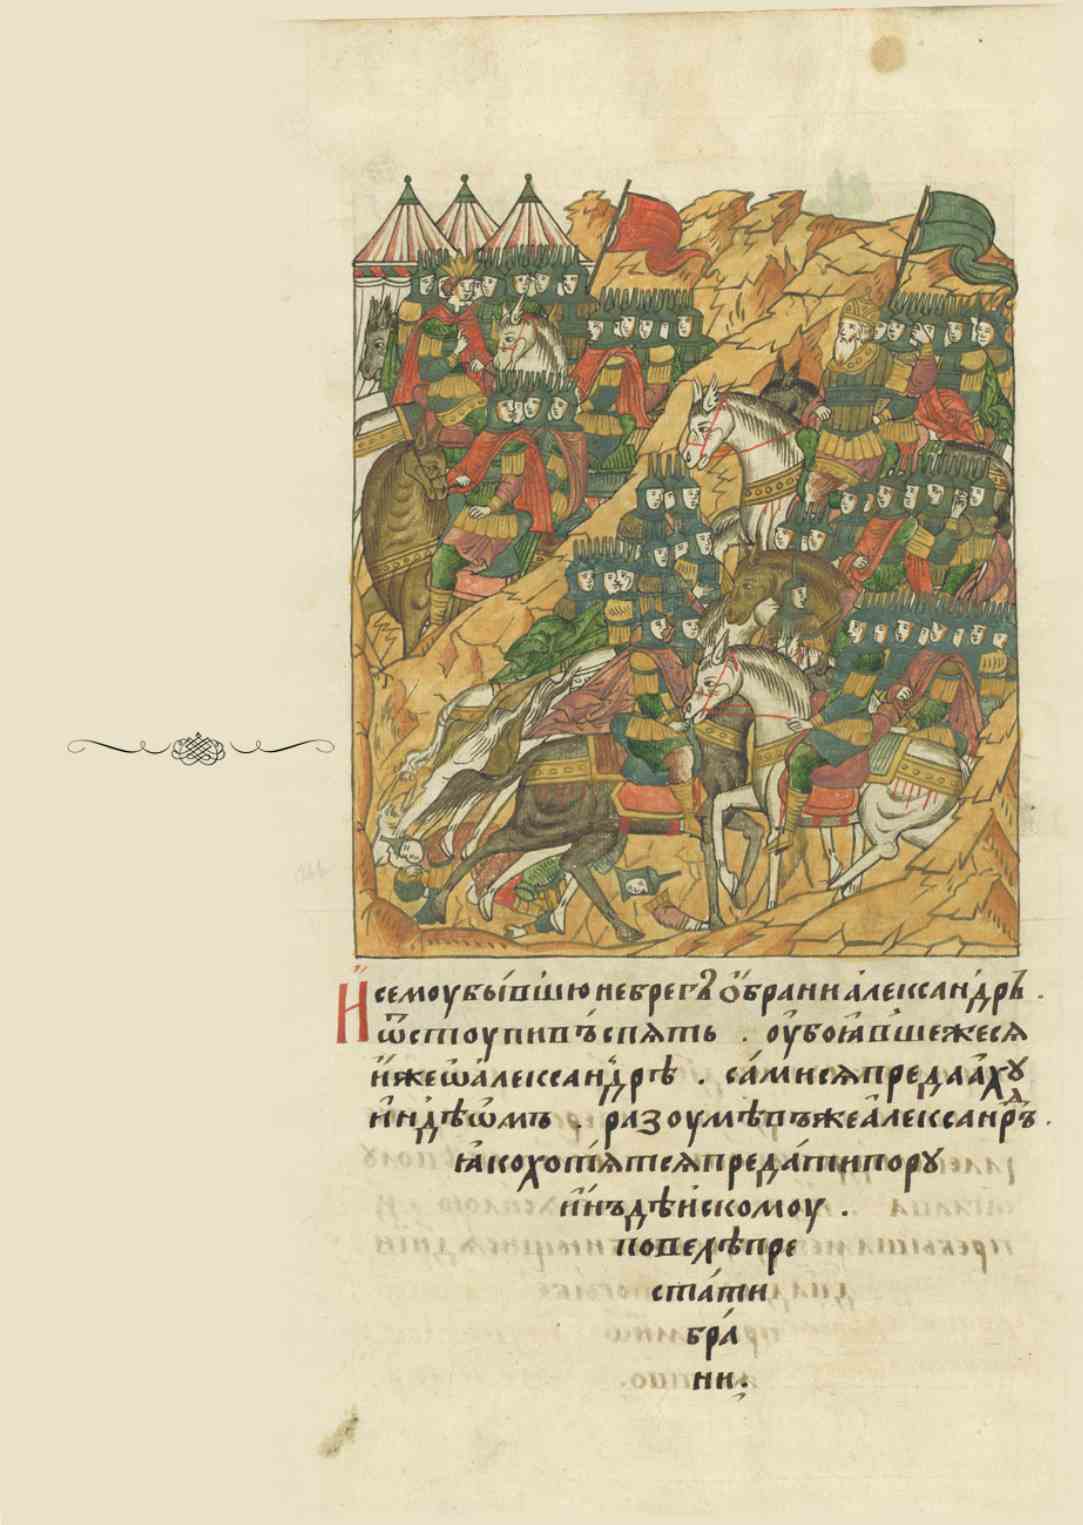 И҆семоубы́вшюнебрегъ ѻ҆браниа҆леѯан́дръ .
ѿстоупивъ́спѧть . оу҆боꙗ҆вшежесѧ
и҆жеѡ҆а҆леѯандрѣ . са́мисѧпредаа҆хꙋ
и҆ндѣѡ҆мъ . разоумѣвъжеа҆леѯандръ .
ꙗ҆кохотѧ́тсѧпреда́типору
и҆нъдѣи҆скомоу .
повелѣпре
ста́ти
бра́
ни .